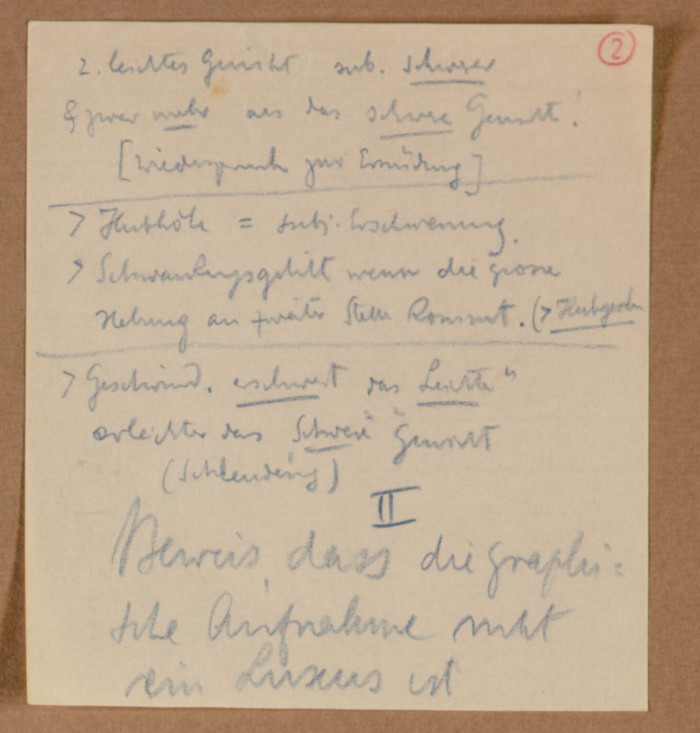 ②
2. leichtes Gewicht sub. schwerer
& zwar mehr als das schwere Gewicht!
[Wiederspruch zur Ermüdung]
> Hubhöhe = subj. Erschwerung.
> wenn die grosse
Hebung an zweiter Stelle kommt. (>
> Geschwind. erschwert das "Leichte"
erleichtert das "Schwere" Gewicht
(Schleuderig)
II
Beweis, dass die graphi=
sche Aufnahme nicht
ein Luxus ist